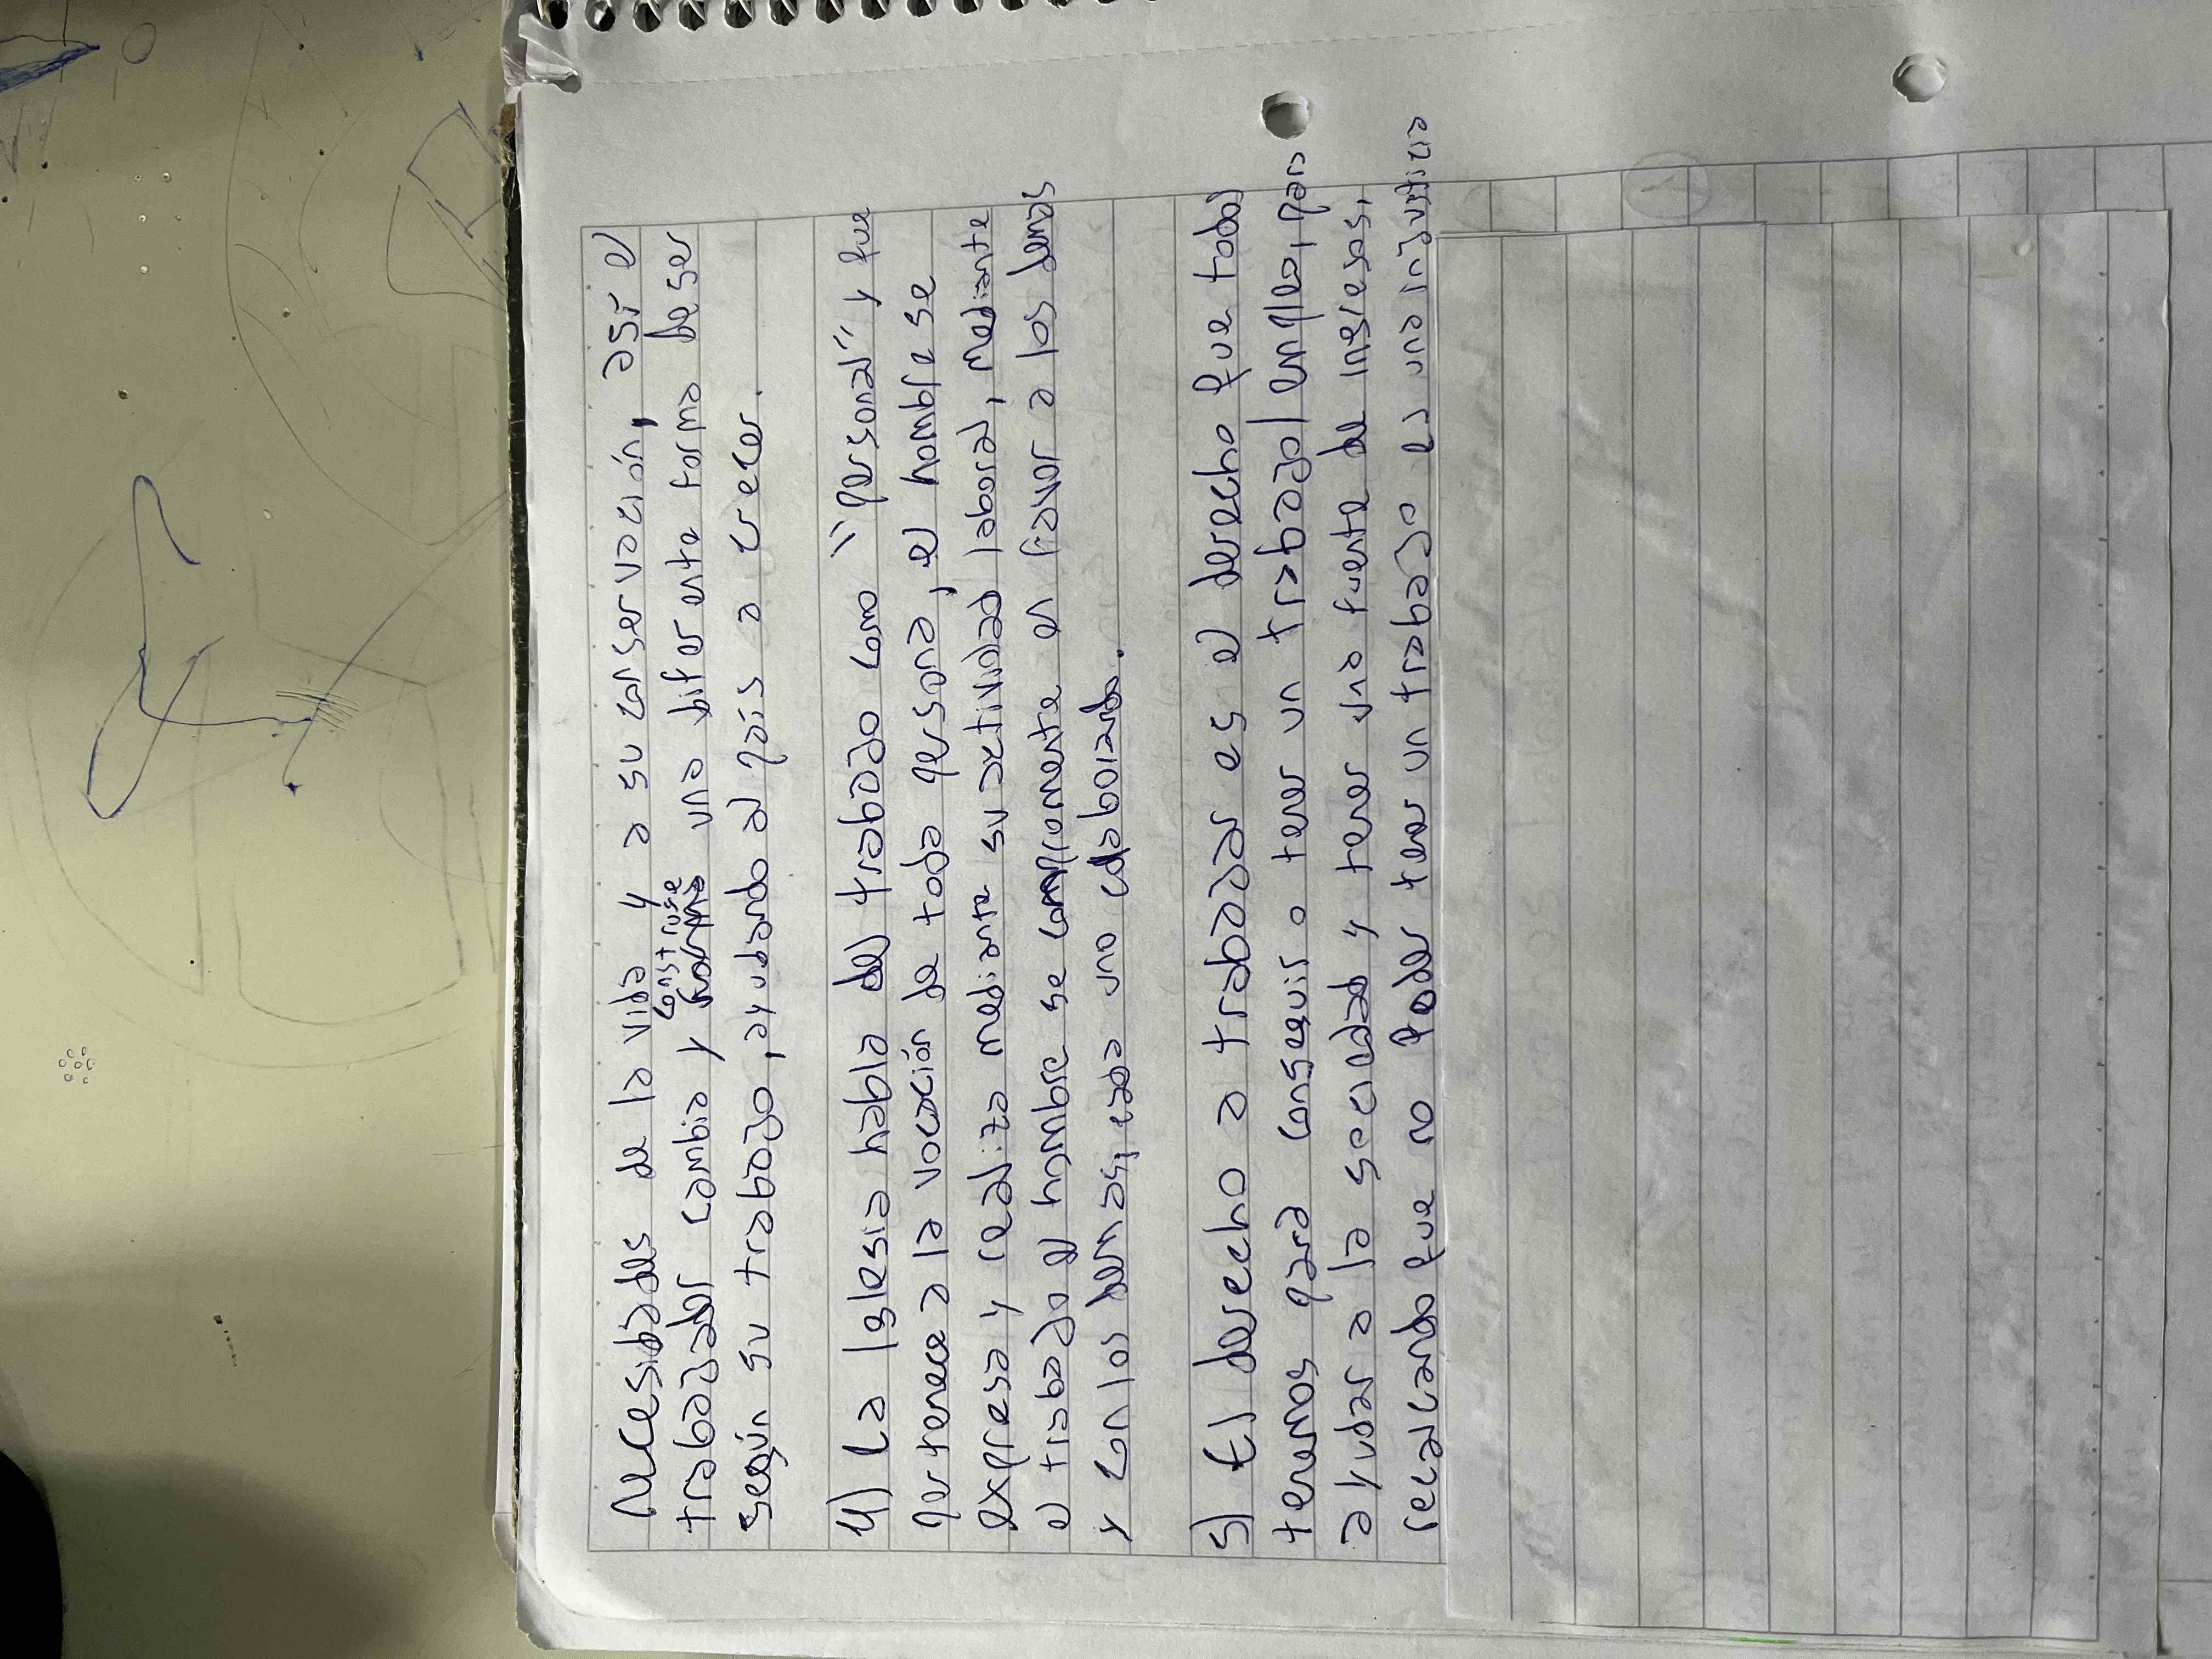 necesidades de la vida y a su conservación, así el
trabajador cambia y construye una diferente forma de ser
según su trabajo, ayudando al país a crecer.
4) La Iglesia habla del trabajo como "personal" y que
pertenece a la vocación de toda persona, el hombre se
expresa y realiza mediante su actividad laboral, mediante
el trabajo el hombre se compromente en favor a los demás
y con los demás, cada uno colaborando.
5) El derecho a trabajar es el derecho que todos
tenemos para conseguir o tener un trabajo/empleo, para
ayudar a la sociedad y tener una fuente de ingresos,
recalcando que no poder tener un trabajo es una injusticia